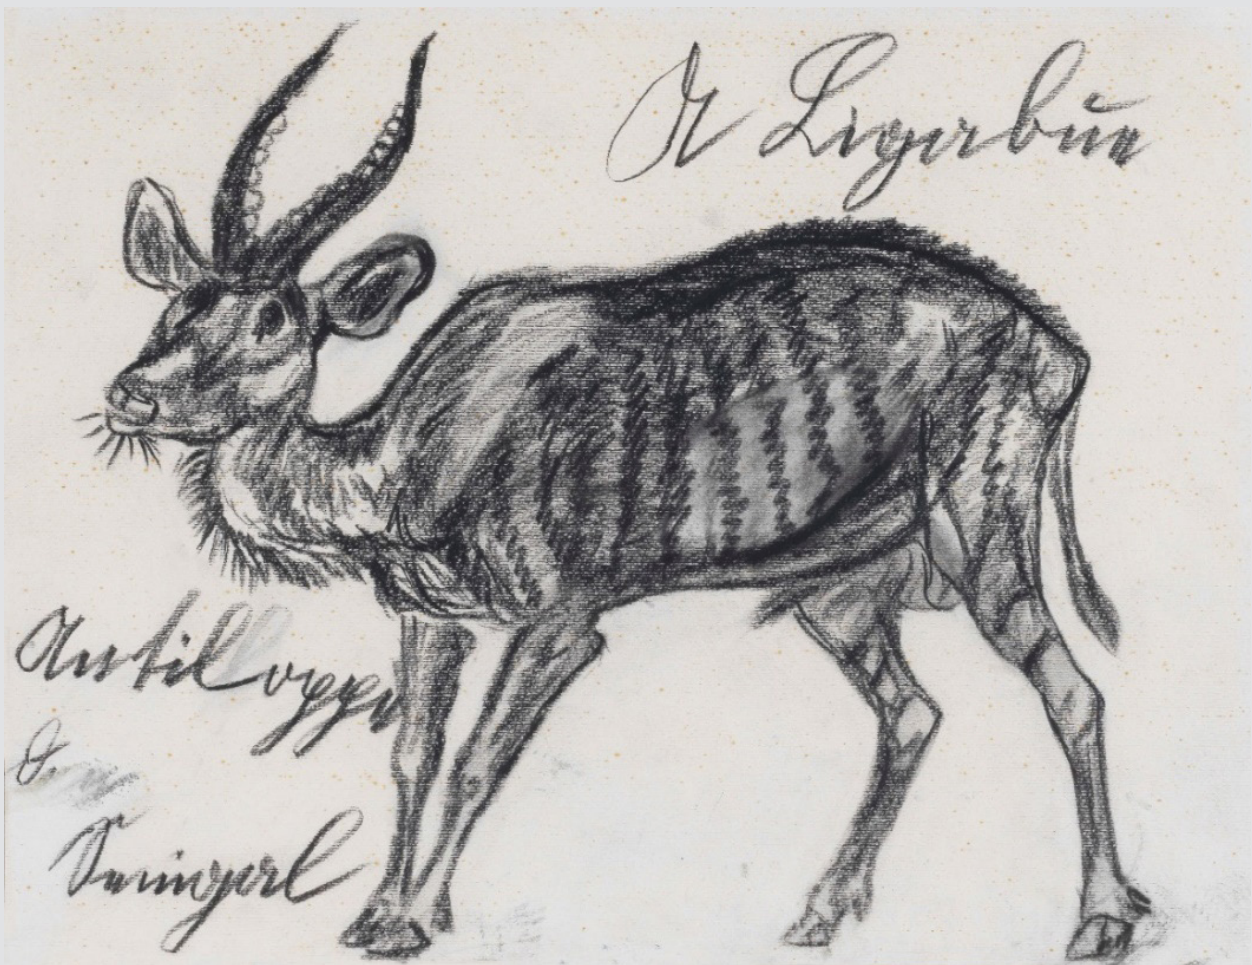 A Ligabue
Antiloppe
d.
Senegal